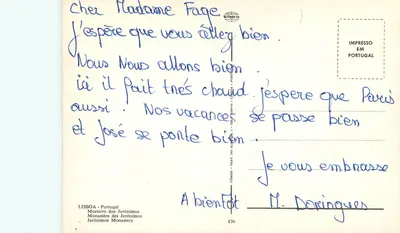 cher Madame Fage
j'espère que vous allez bien.
Nous Nous allons bien.
ici il fait très chaud j'espère que Paris
aussi. Nos vacances se passe bien
et José se porte bien.
Je vous embrasse
A bientôt M. Domingues
IMPRESSO
EM
PORTUGAL
LISBOA - Portugal
Mosteiro dos Jerónimos
Monastère des Jerónimos
Jerónimos Monastery